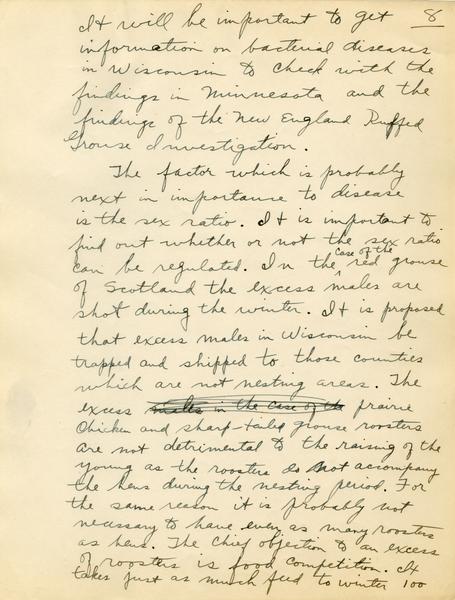 8
It will be important to get
information on bacterial diseases
in Wisconsin to check with the
findings in Minnesota and the
findings of the New England Ruffed
Grouse Investigation.
The factor which is probably
next in importance to disease
is the sex ratio. It is important to
find out whether or not the sex ratio
can be regulated. In the case of the red grouse
of Scotland the excess males are
shot during the winter. It is proposed
that excess males in Wisconsin be
trapped and shipped to those counties
which are not nesting areas. The
excess males in the case of the prairie
chicken and sharp-tailed grouse roosters
are not detrimental to the raising of the
young as the roosters do not accompany
the hens during the nesting period. For
the same reason it is probably not
necessary to have even as many roosters
as hens. The chief objection to an excess
of roosters is food competition. It
takes just as much feed to winter 100